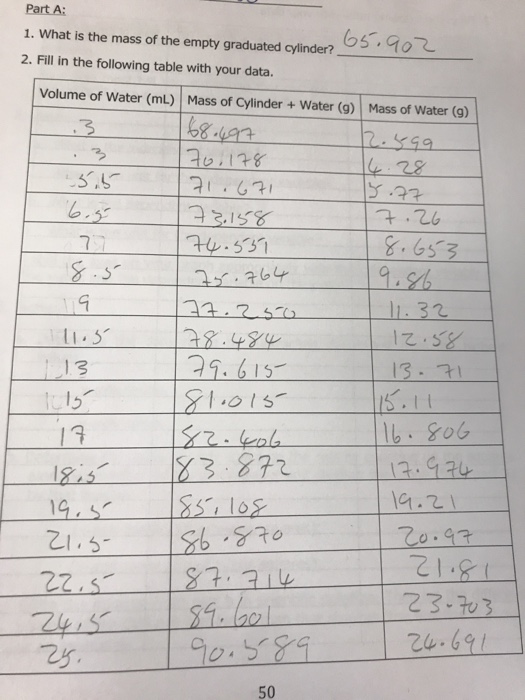 Part A:
1. What is the mass of the empty graduated cylinder? 65.902
2. Fill in the following table with your data.
Volume of Water (mL) Mass of Cylinder + Water (g) Mass of Water (g)
.3 68.497 2.599
.3 70.178 4.28
5.5 71.671 5.77
6.5 73.158 7.26
7 74.551 8.653
8.5 75.764 9.86
9 77.250 11.32
11.5 78.484 12.58
13 79.615 13.71
15 81.015 15.11
17 82.406 16.806
18.5 83.872 17.974
19.5 85.108 19.21
21.5 86.870 20.97
22.5 87.714 21.81
24.5 89.601 23.703
25. 90.589 24.691
50